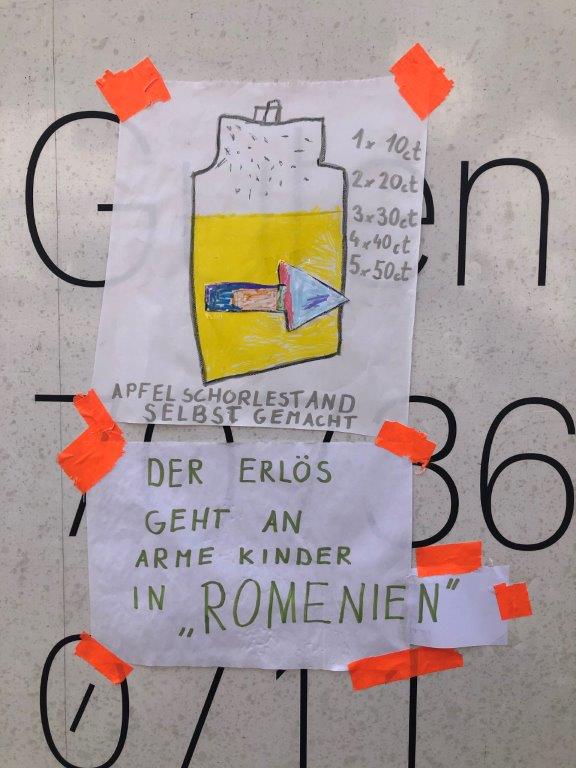 1x 10ct
2x 20ct
3x 30ct
4x 40ct
5x 50ct
APFELSCHORLESTAND
SELBST GEMACHT
DER ERLÖS
GEHT AN
ARME KINDER
IN „ROMENIEN“